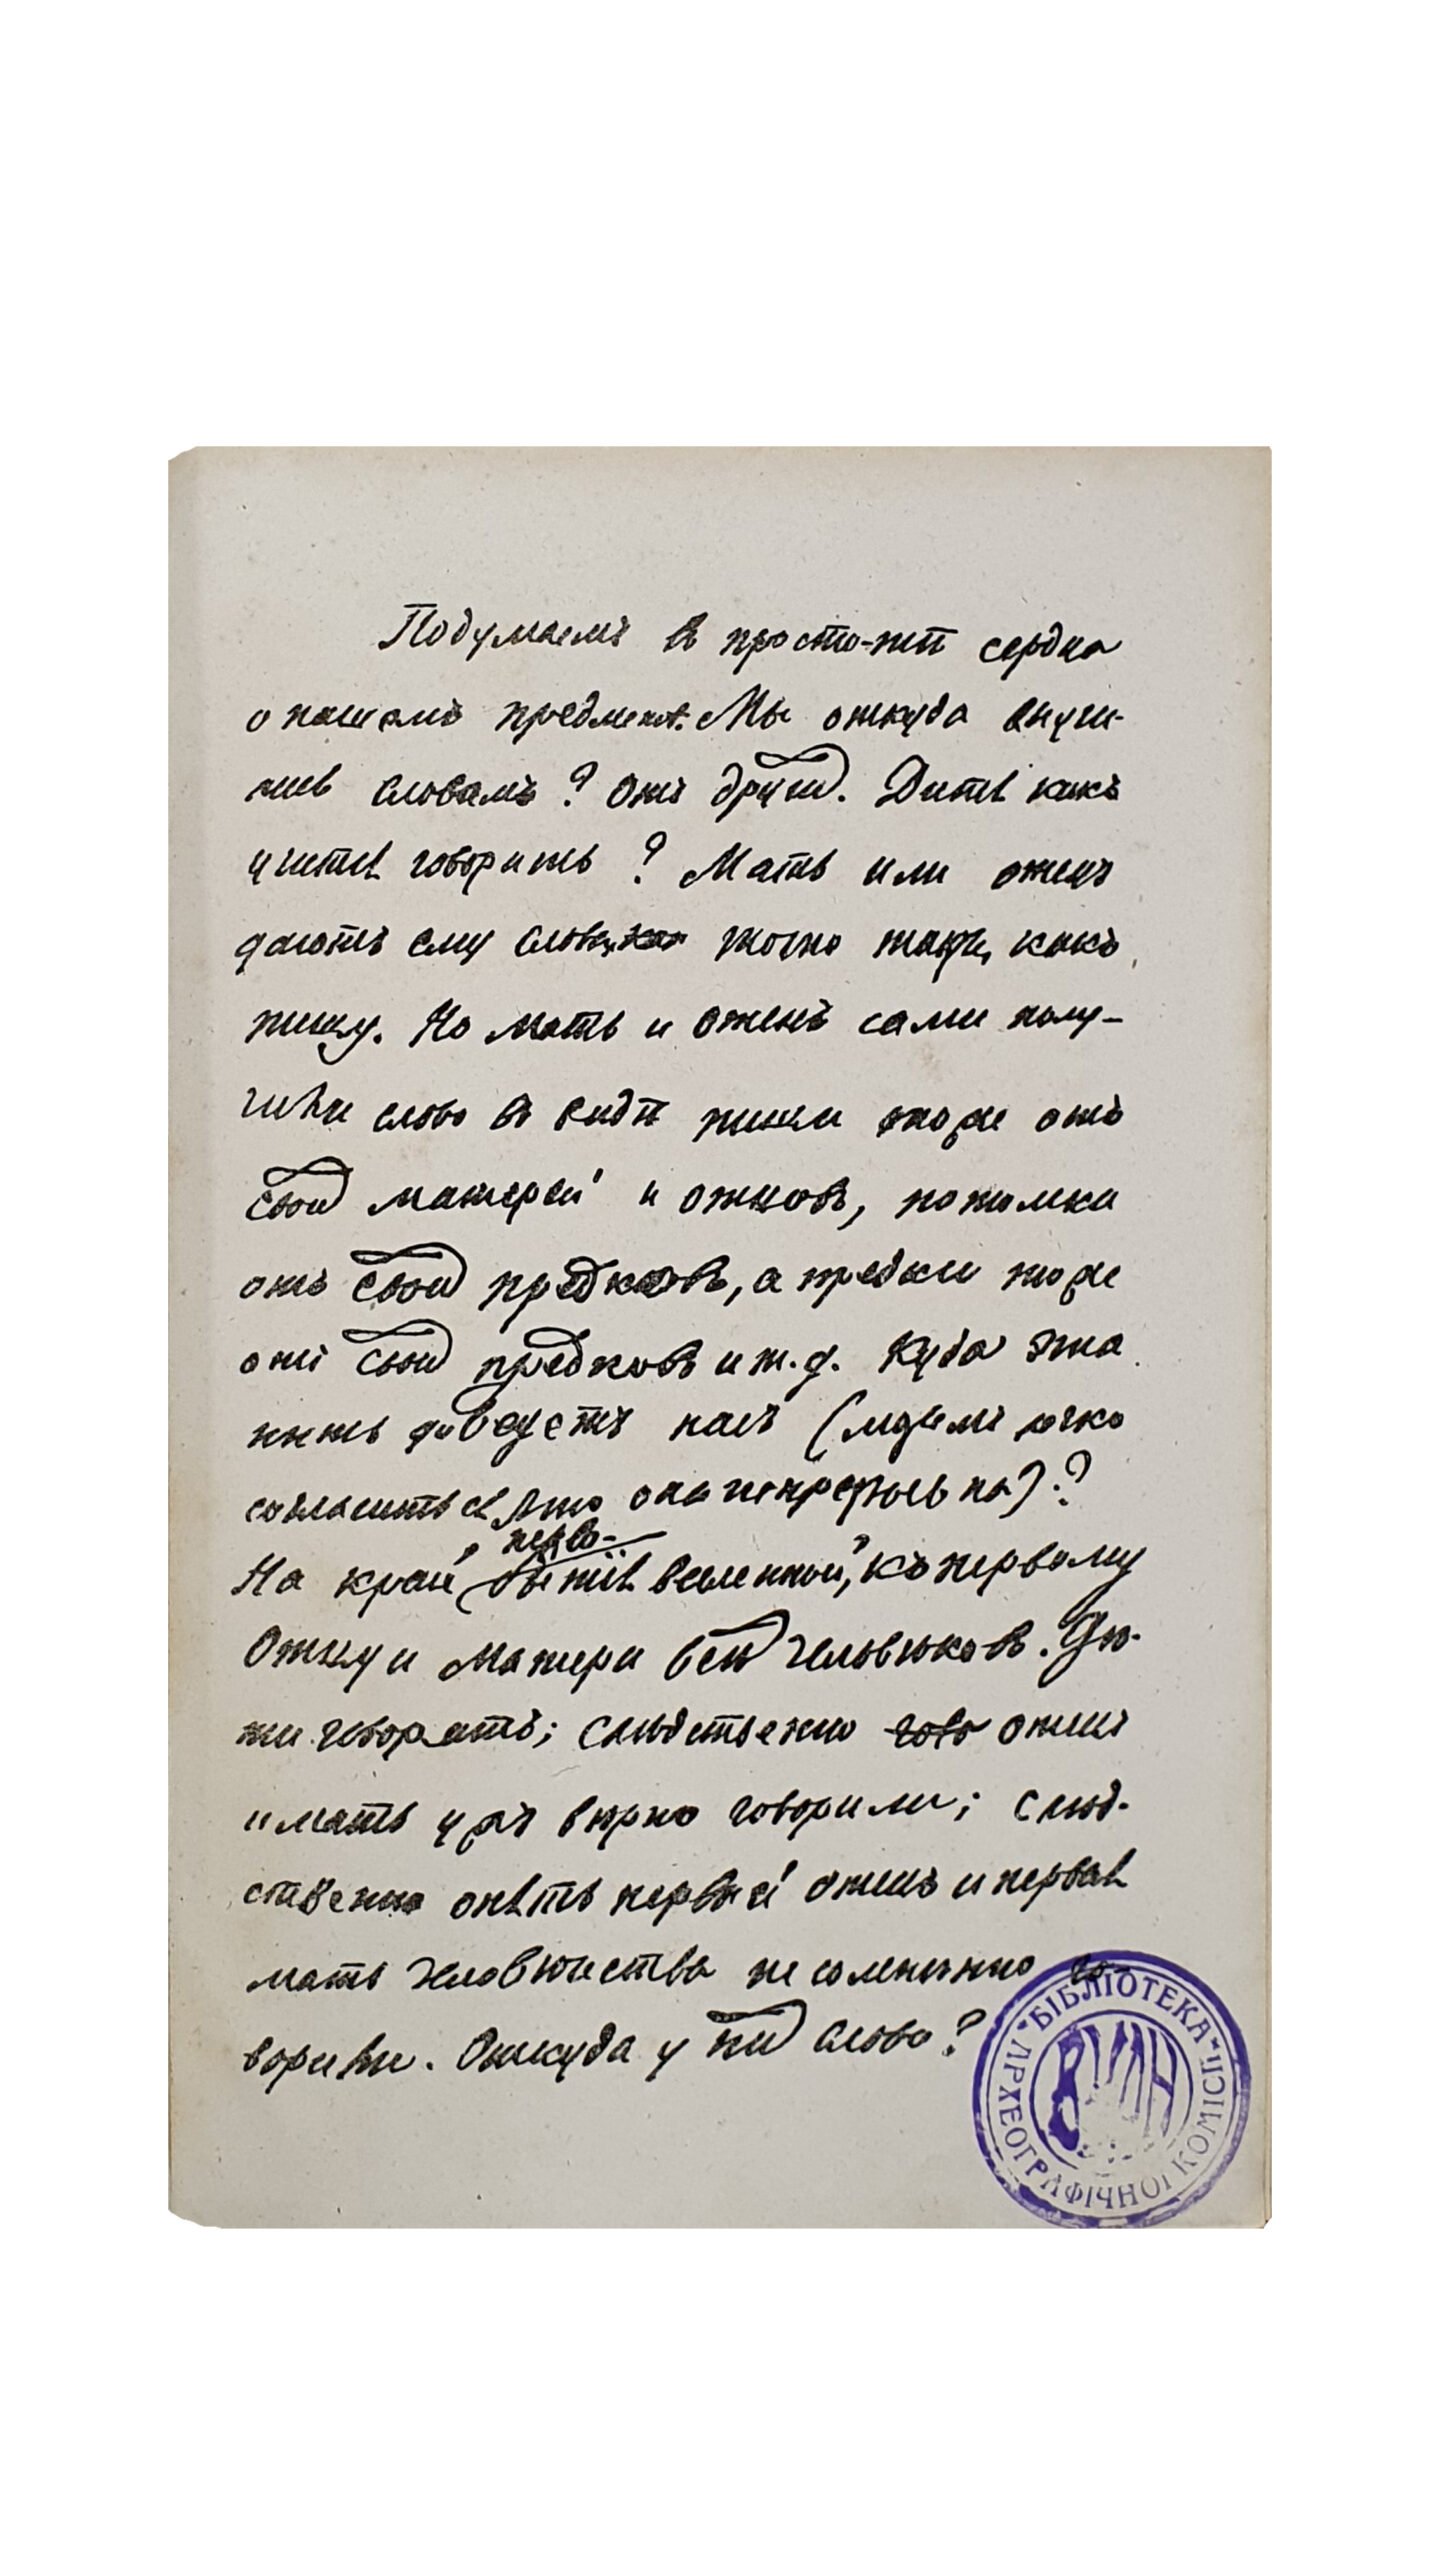 Подумаемъ въ просто-тѣ сердца
о нашемъ предметѣ. Мы откуда научи-
лись словамъ? Отъ другихъ. Дитя какъ
учится говорить? Мать или отецъ
даютъ ему слова, точно также, какъ
пищу. Но мать и отецъ сами полу-
чили слово въ видѣ пищи тоже отъ
своихъ матерей и отцовъ, потомки
отъ своихъ предковъ, а предки тоже
отъ своихъ предковъ и т. д. Куда эта
нить доведетъ насъ (
согласиться, что она непрерывна)?
перво-
На край „бытія вселенной", къ первому
Отцу и Матери всѣхъ человѣковъ. Дѣ-
ти говорятъ; слѣдственно гово отецъ
и мать ужъ вѣрно говорили; слѣд-
ственно опять первый отецъ и первая
мать человѣчества несомнѣнно го-
ворили. Откуда у нихъ слово?
БІБЛІОТЕКА
АРХЕОГРАФІЧНОЇ КОМІСІЇ
ВУАН